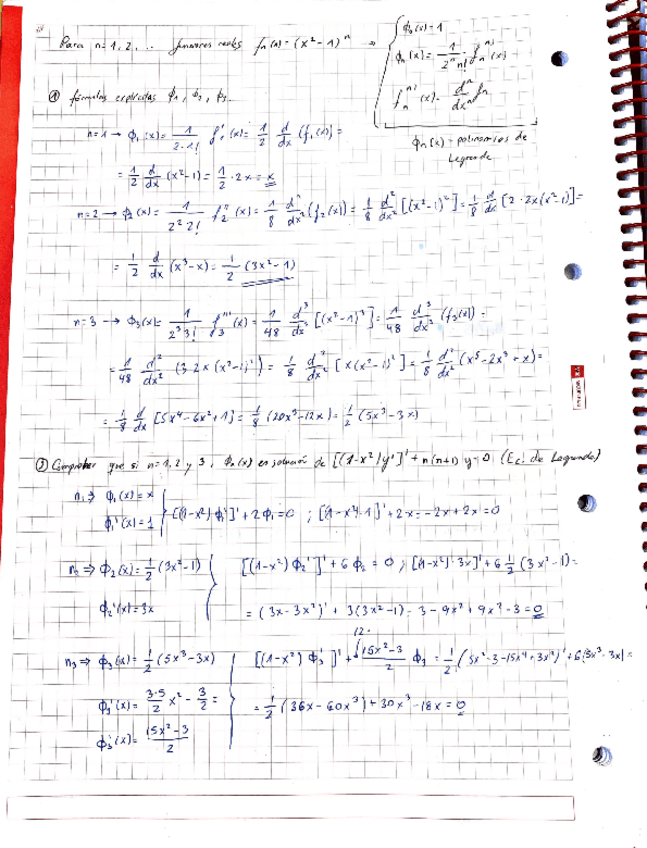 Para n=1,2,... funciones reales fₙ(x)=(x²-1)ⁿ ⇒ { ϕ₀(x)=1
ϕₙ(x)= 1/(2ⁿn!) fₙⁿ⁾(x)
fₙⁿ⁾(x)= dⁿ/dxⁿ fₙ
ϕₙ(x) = polinomios de Legendre
① fórmulas explícitas ϕ₁, ϕ₂, ϕ₃.
n=1 → ϕ₁(x)= 1/(2·1!) f₁'(x)= 1/2 d/dx (f₁(x))=
= 1/2 d/dx (x²-1)= 1/2 · 2x = x
n=2 → ϕ₂(x)= 1/(2²2!) f₂''(x)= 1/8 d²/dx² (f₂(x))= 1/8 d²/dx² [(x²-1)²]= 1/8 d/dx [2·2x(x²-1)]=
= 1/2 d/dx (x³-x)= 1/2 (3x²-1)
n=3 → ϕ₃(x)= 1/(2³3!) f₃'''(x)= 1/48 d³/dx³ [(x²-1)³]= 1/48 d³/dx³ (f₃(x))=
= 1/48 d²/dx² (3·2x(x²-1)²)= 1/8 d²/dx² [x(x²-1)²]= 1/8 d²/dx² (x⁵-2x³+x)=
= 1/8 d/dx [5x⁴-6x²+1]= 1/8 (20x³-12x)= 1/2 (5x³-3x)
② Comprobar que si n=1,2 y 3, ϕₙ(x) es solución de [(1-x²)y']'+n(n+1)y=0 (Ec. de Legendre)
n₁ ⇒ ϕ₁(x)=x
ϕ₁'(x)=1 } [(1-x²)ϕ₁']'+2ϕ₁=0 ; [1-x²·1]'+2x=-2x+2x=0
n₂ ⇒ ϕ₂(x)= 1/2 (3x²-1) { [(1-x²)ϕ₂']'+6ϕ₂=0 ; [(1-x²)·3x]'+6 1/2 (3x²-1)=
ϕ₂'(x)=3x = (3x-3x³)'+3(3x²-1)=3-9x²+9x²-3=0
n₃ ⇒ ϕ₃(x)= 1/2 (5x³-3x) { [(1-x²)ϕ₃']'+ 12· (15x²-3)/2 ϕ₃ = 1/2 (15x²-3-15x⁴+3x²)'+6(5x³-3x)=
ϕ₃'(x)= 3·5/2 x² - 3/2 = = 1/2 (36x-60x³)+30x³-18x=0
ϕ₃'(x)= (15x²-3)/2